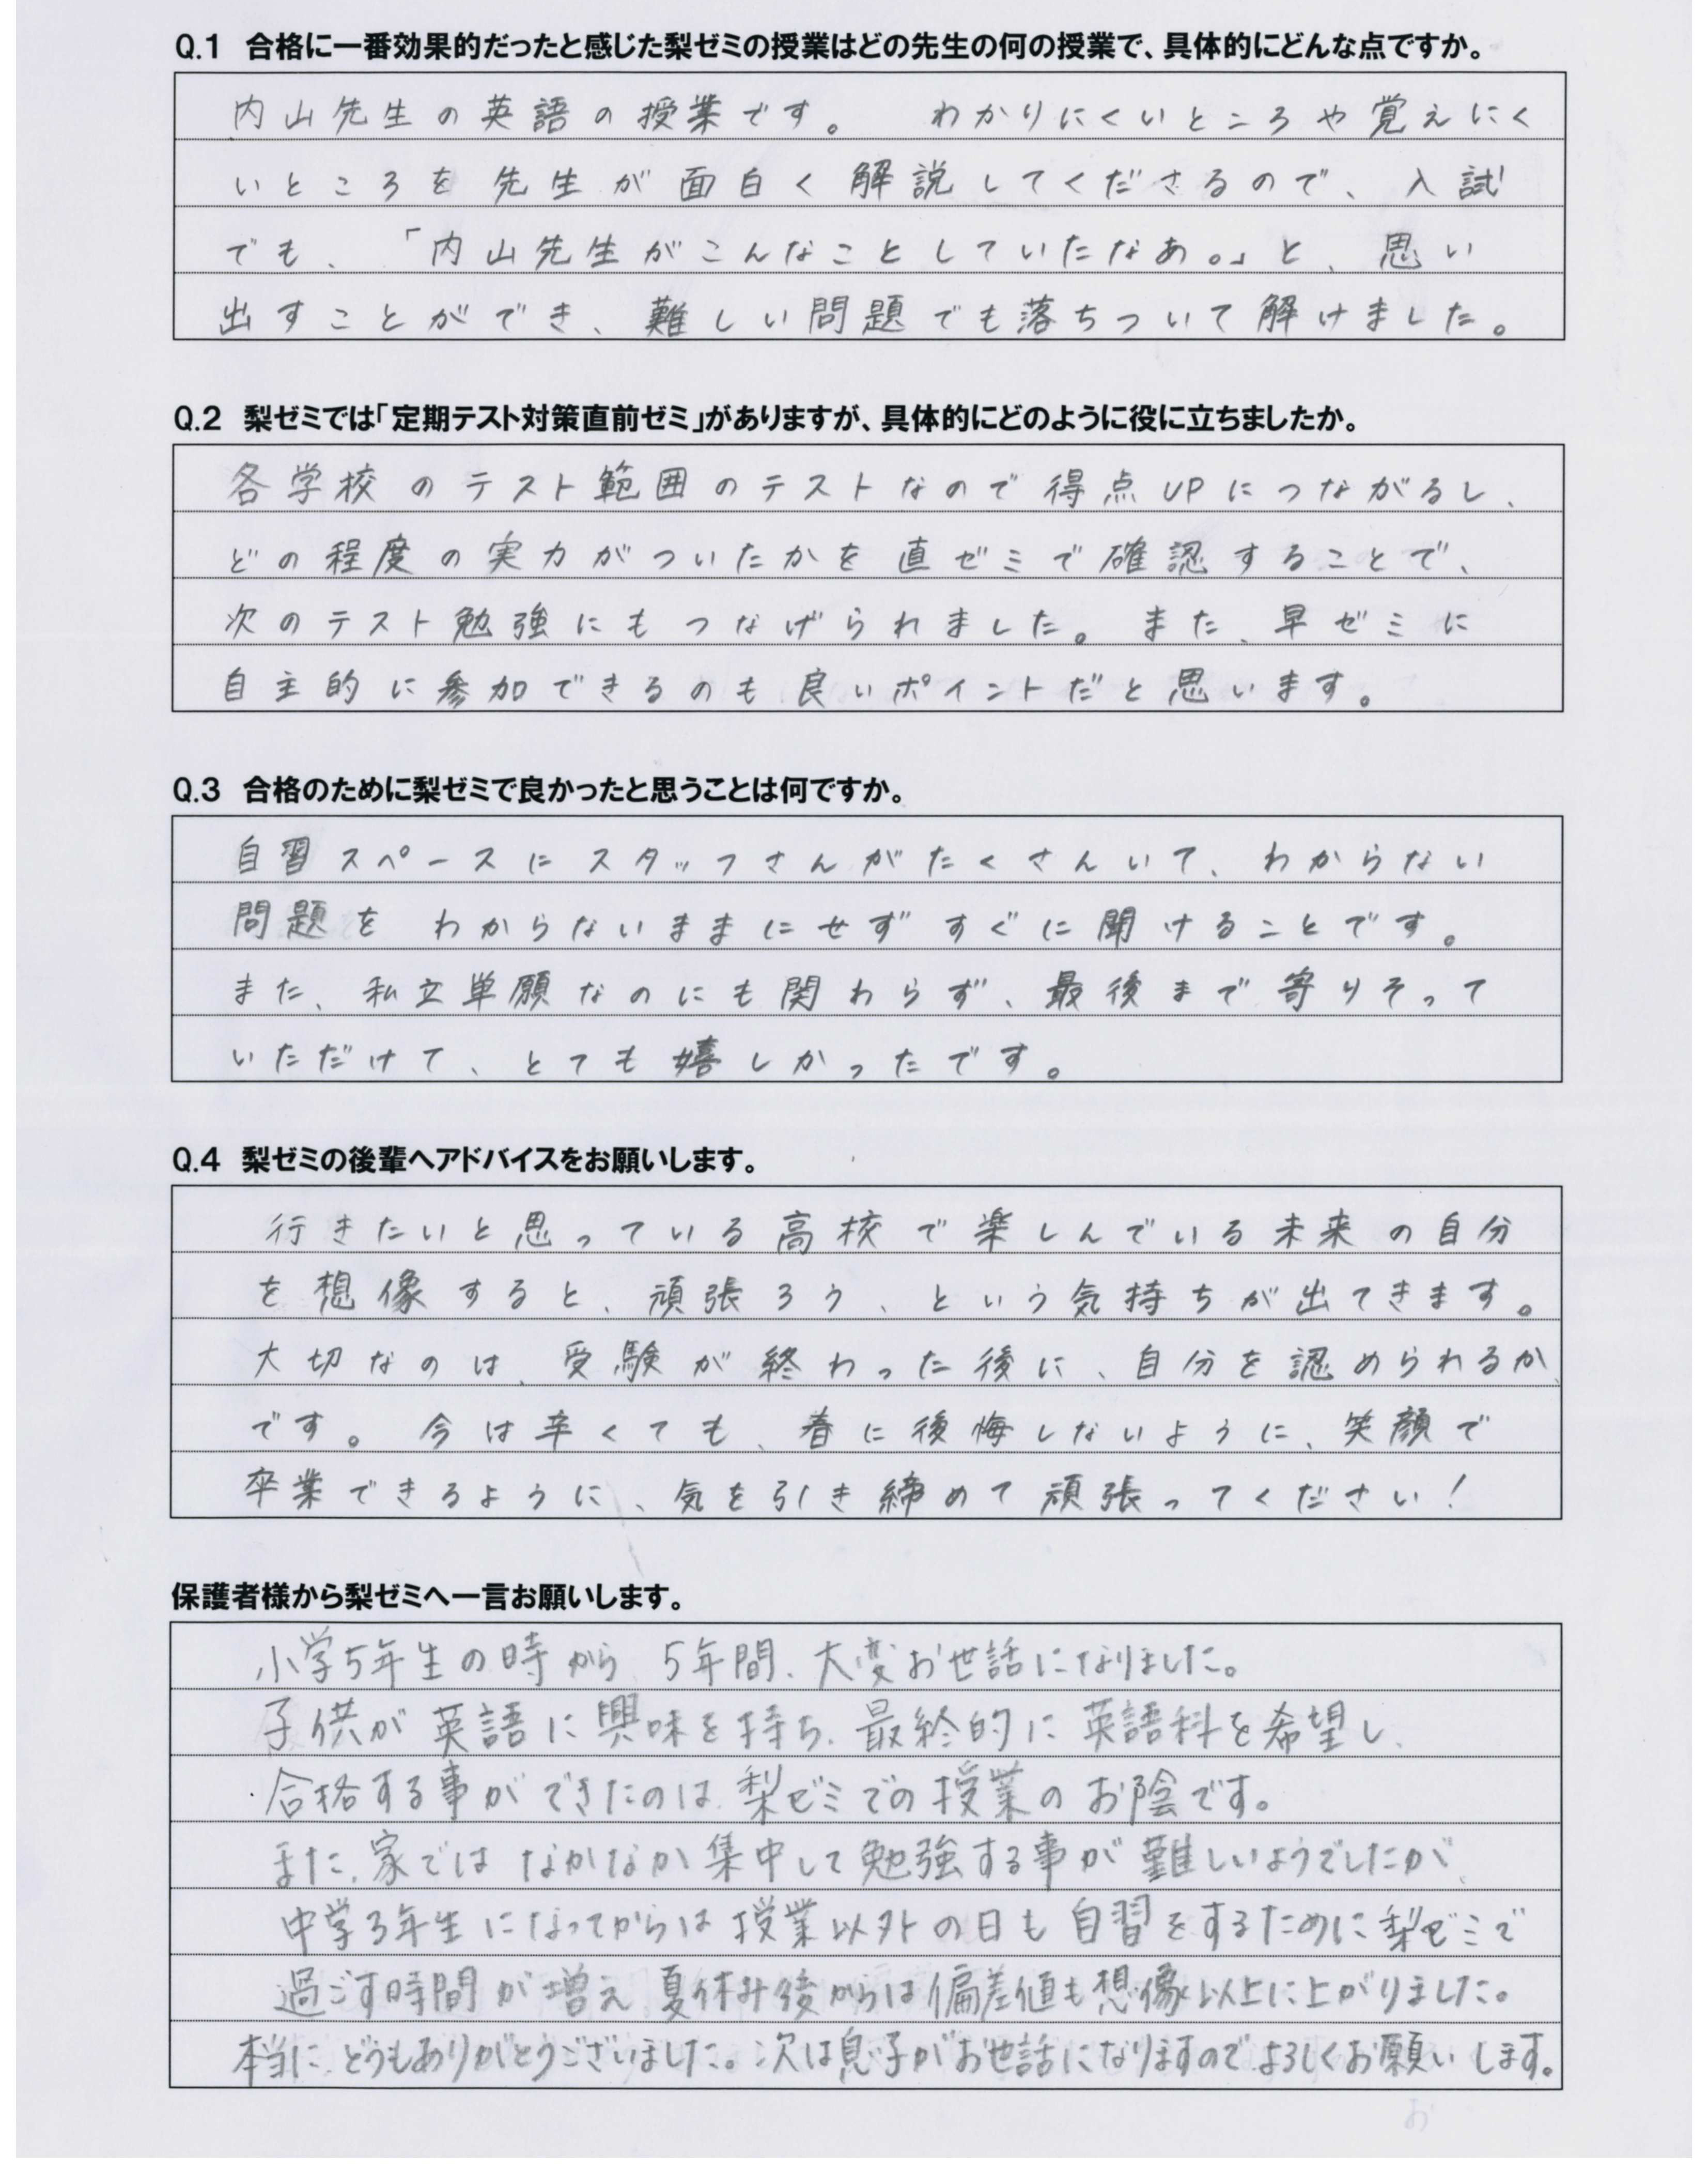 Q.1 合格に一番効果的だったと感じた梨ゼミの授業はどの先生の何の授業で、具体的にどんな点ですか。
内山先生の英語の授業です。 わかりにくいところや覚えにく
いところを先生が面白く解説してくださるので、入試
でも、「内山先生がこんなことしていたなあ。」と、思い
出すことができ、難しい問題でも落ちついて解けました。
Q.2 梨ゼミでは「定期テスト対策直前ゼミ」がありますが、具体的にどのように役に立ちましたか。
各学校のテスト範囲のテストなので得点UPにつながるし、
どの程度の実力がついたかを直ゼミで確認することで、
次のテスト勉強にもつなげられました。また、早ゼミに
自主的に参加できるのも良いポイントだと思います。
Q.3 合格のために梨ゼミで良かったと思うことは何ですか。
自習スペースにスタッフさんがたくさんいて、わからない
問題を わからないままにせずすぐに聞けることです。
また、私立単願なのにも関わらず、最後まで寄りそって
いただけて、とても嬉しかったです。
Q.4 梨ゼミの後輩へアドバイスをお願いします。
行きたいと思っている高校で楽しんでいる未来の自分
を想像すると、頑張ろう、という気持ちが出てきます。
大切なのは、受験が終わった後に、自分を認められるか
です。今は辛くても、春に後悔しないように、笑顔で
卒業できるように、気を引き締めて頑張ってください!
保護者様から梨ゼミへ一言お願いします。
小学5年生の時から 5年間、大変お世話になりました。
子供が英語に興味を持ち、最終的に英語科を希望し、
合格する事ができたのは、梨ゼミでの授業のお陰です。
また、家では なかなか集中して勉強する事が難しいようでしたが、
中学3年生になってからは授業以外の日も自習をするために梨ゼミで
過ごす時間が増え、夏休み後からは偏差値も想像以上に上がりました。
本当に、どうもありがとうございました。次は息子がお世話になりますのでよろしくお願いします。
お